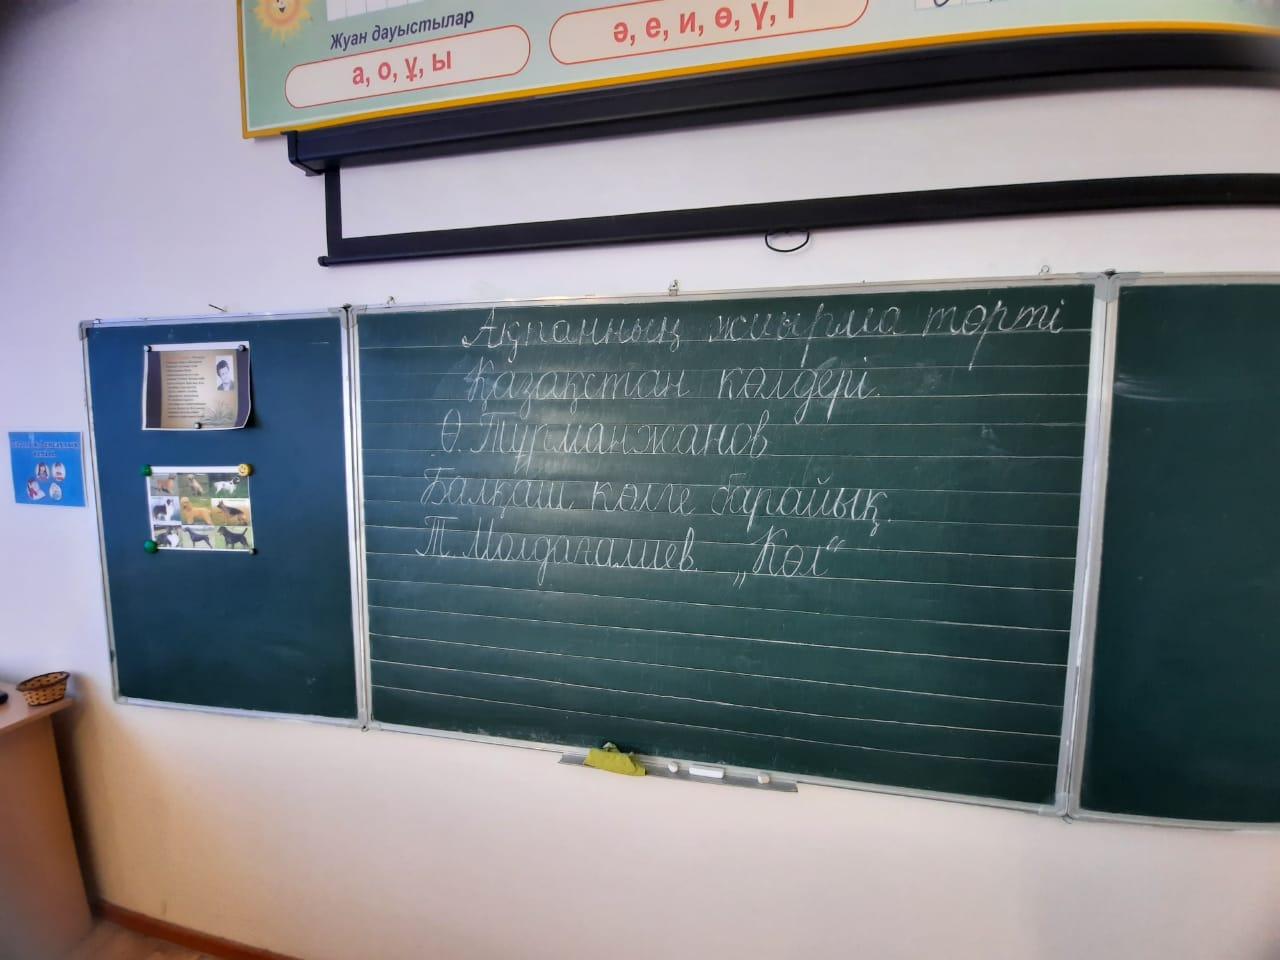 Жуан дауыстылар
а, о, ұ, ы
ә, е, и, ө, ү, і
Ақпанның жиырма төрті
Қазақстан көлдері.
Ө. Тұрманжанов
Балқаш көлге барайық.
Т. Молдағалиев. „Көл“